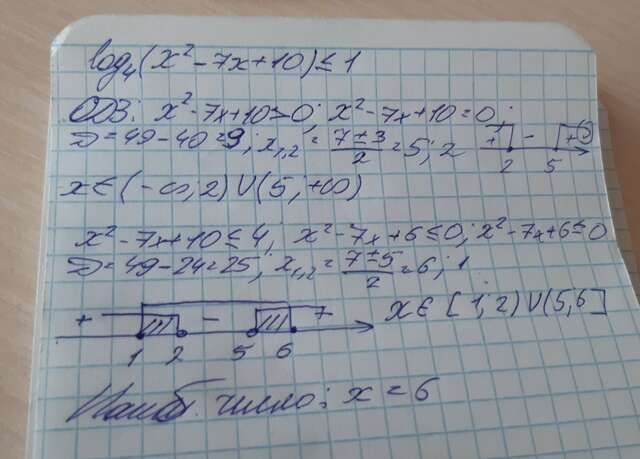 log₄(x² - 7x + 10) ≤ 1
ОДЗ: x² - 7x + 10 > 0; x² - 7x + 10 = 0;
D = 49 - 40 = 9; x₁,₂ = (7 ± 3)/2 = 5; 2
+ - +
2 5
x ∈ (-∞; 2) ∪ (5; +∞)
x² - 7x + 10 ≤ 4; x² - 7x + 6 ≤ 0; x² - 7x + 6 ≤ 0
D = 49 - 24 = 25; x₁,₂ = (7 ± 5)/2 = 6; 1
+ - +
1 2 5 6
x ∈ [1; 2) ∪ (5; 6]
Наиб. число: x = 6